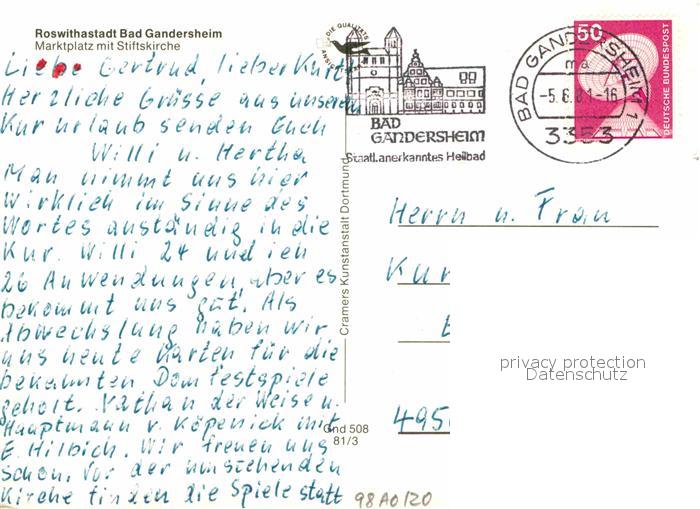 Roswithastadt Bad Gandersheim
Marktplatz mit Stiftskirche
Liebe Gertrud, lieber Kurt
Herzliche Grüsse aus unserem
Kururlaub senden Euch
Willi u. Hertha
Man nimmt uns hier
wirklich im Sinne des
Wortes anständig in die
Kur. Willi 24 und ich
26 Anwendungen, aber es
bekommt uns gut. Als
Abwechslung haben wir
uns heute Karten für die
bekannten Domfestspiele
geholt. Nathan der Weise u.
Hauptmann v. Köpenick mit
E. Hilbich. Wir freuen uns
schon. Vor der umstehenden
Kirche finden die Spiele statt
DIE QUALITÄTS
BAD
GANDERSHEIM
Staatl. anerkanntes Heilbad
BAD GANDERSHEIM 1
ma
-5.6.81-16
3353
50
DEUTSCHE BUNDESPOST
Cramers Kunstanstalt Dortmund
Gnd 508
81/3
Herrn u. Frau
Kur
495
privacy protection
Datenschutz
98A0/20